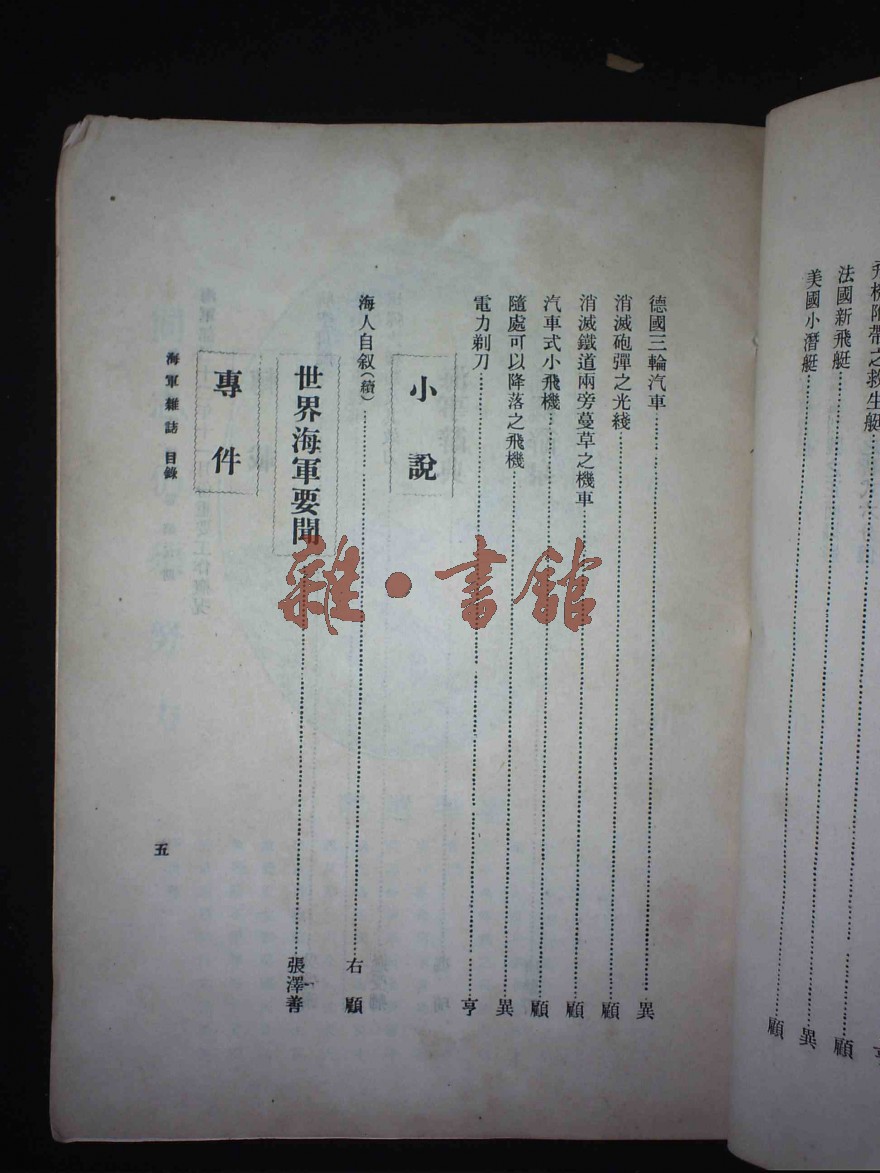 飛機附帶之救生艇
法國新飛艇……顧
美國小潛艇……異
顧
德國三輪汽車……異
消滅砲彈之光綫……顧
消滅鐵道兩旁蔓草之機車……顧
汽車式小飛機……顧
隨處可以降落之飛機……異
電力剃刀……亨
小說
海人自叙(續)……右顧
世界海軍要聞……張澤善
專件
海軍雜誌 目錄
五
雜·書館